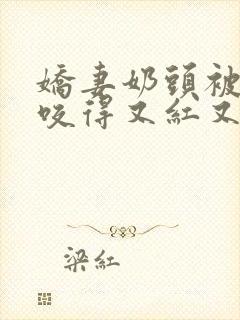 嬌妻奶頭被
咬得又紅又
梁紅